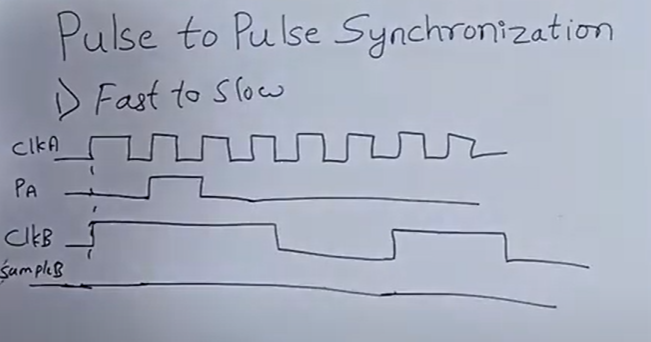 Pulse to Pulse Synchronization
1) Fast to Slow
ClkA
PA
ClkB
SampleB